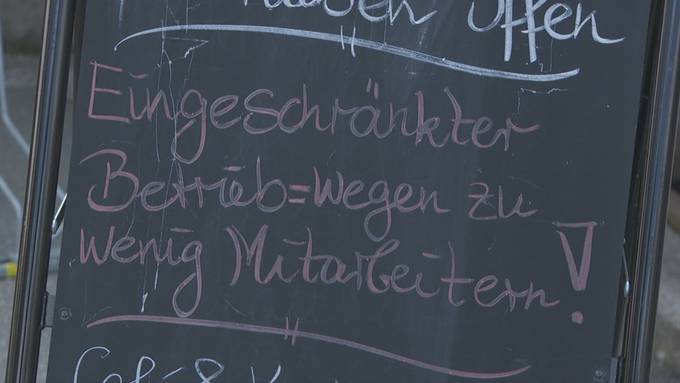 haben offen
Eingeschränkter
Betrieb=wegen zu
wenig Mitarbeitern!